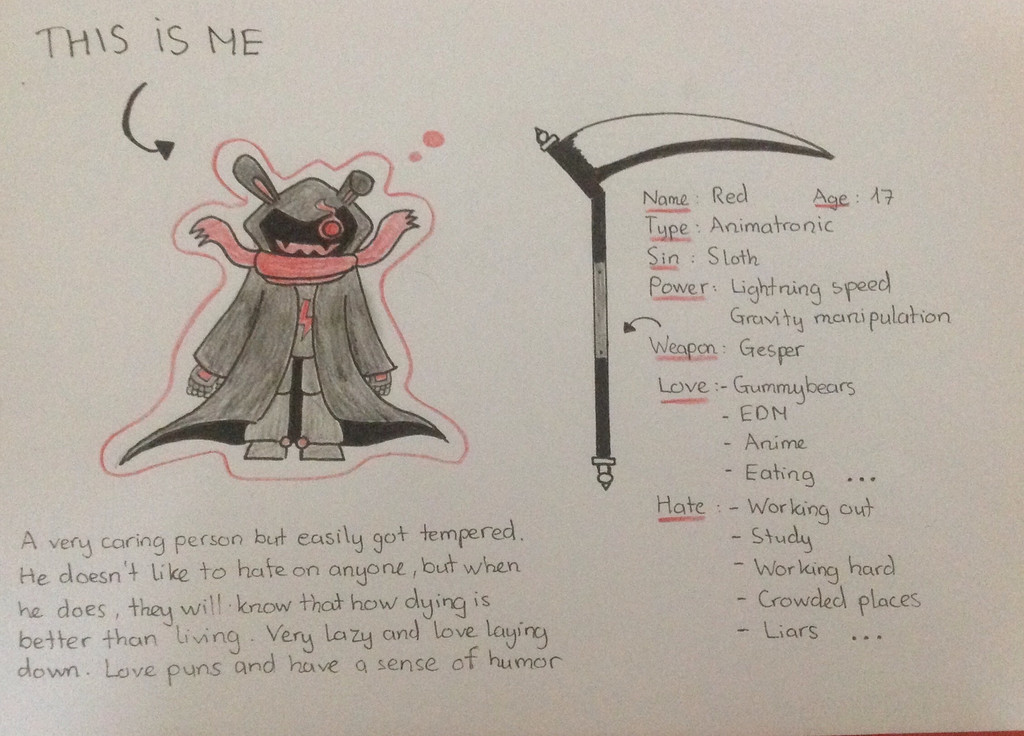 THIS iS ME
Name : Red Age : 17
Type : Animatronic
Sin : Sloth
Power : Lightning speed
Gravity manipulation
Weapon : Gesper
Love : - Gummybears
- EDM
- Anime
- Eating ...
Hate : - Working out
- Study
- Working hard
- Crowded places
- Liars ...
A very caring person but easily got tempered.
He doesn't like to hate on anyone, but when
he does, they will know that how dying is
better than living. Very lazy and love laying
down. Love puns and have a sense of humor